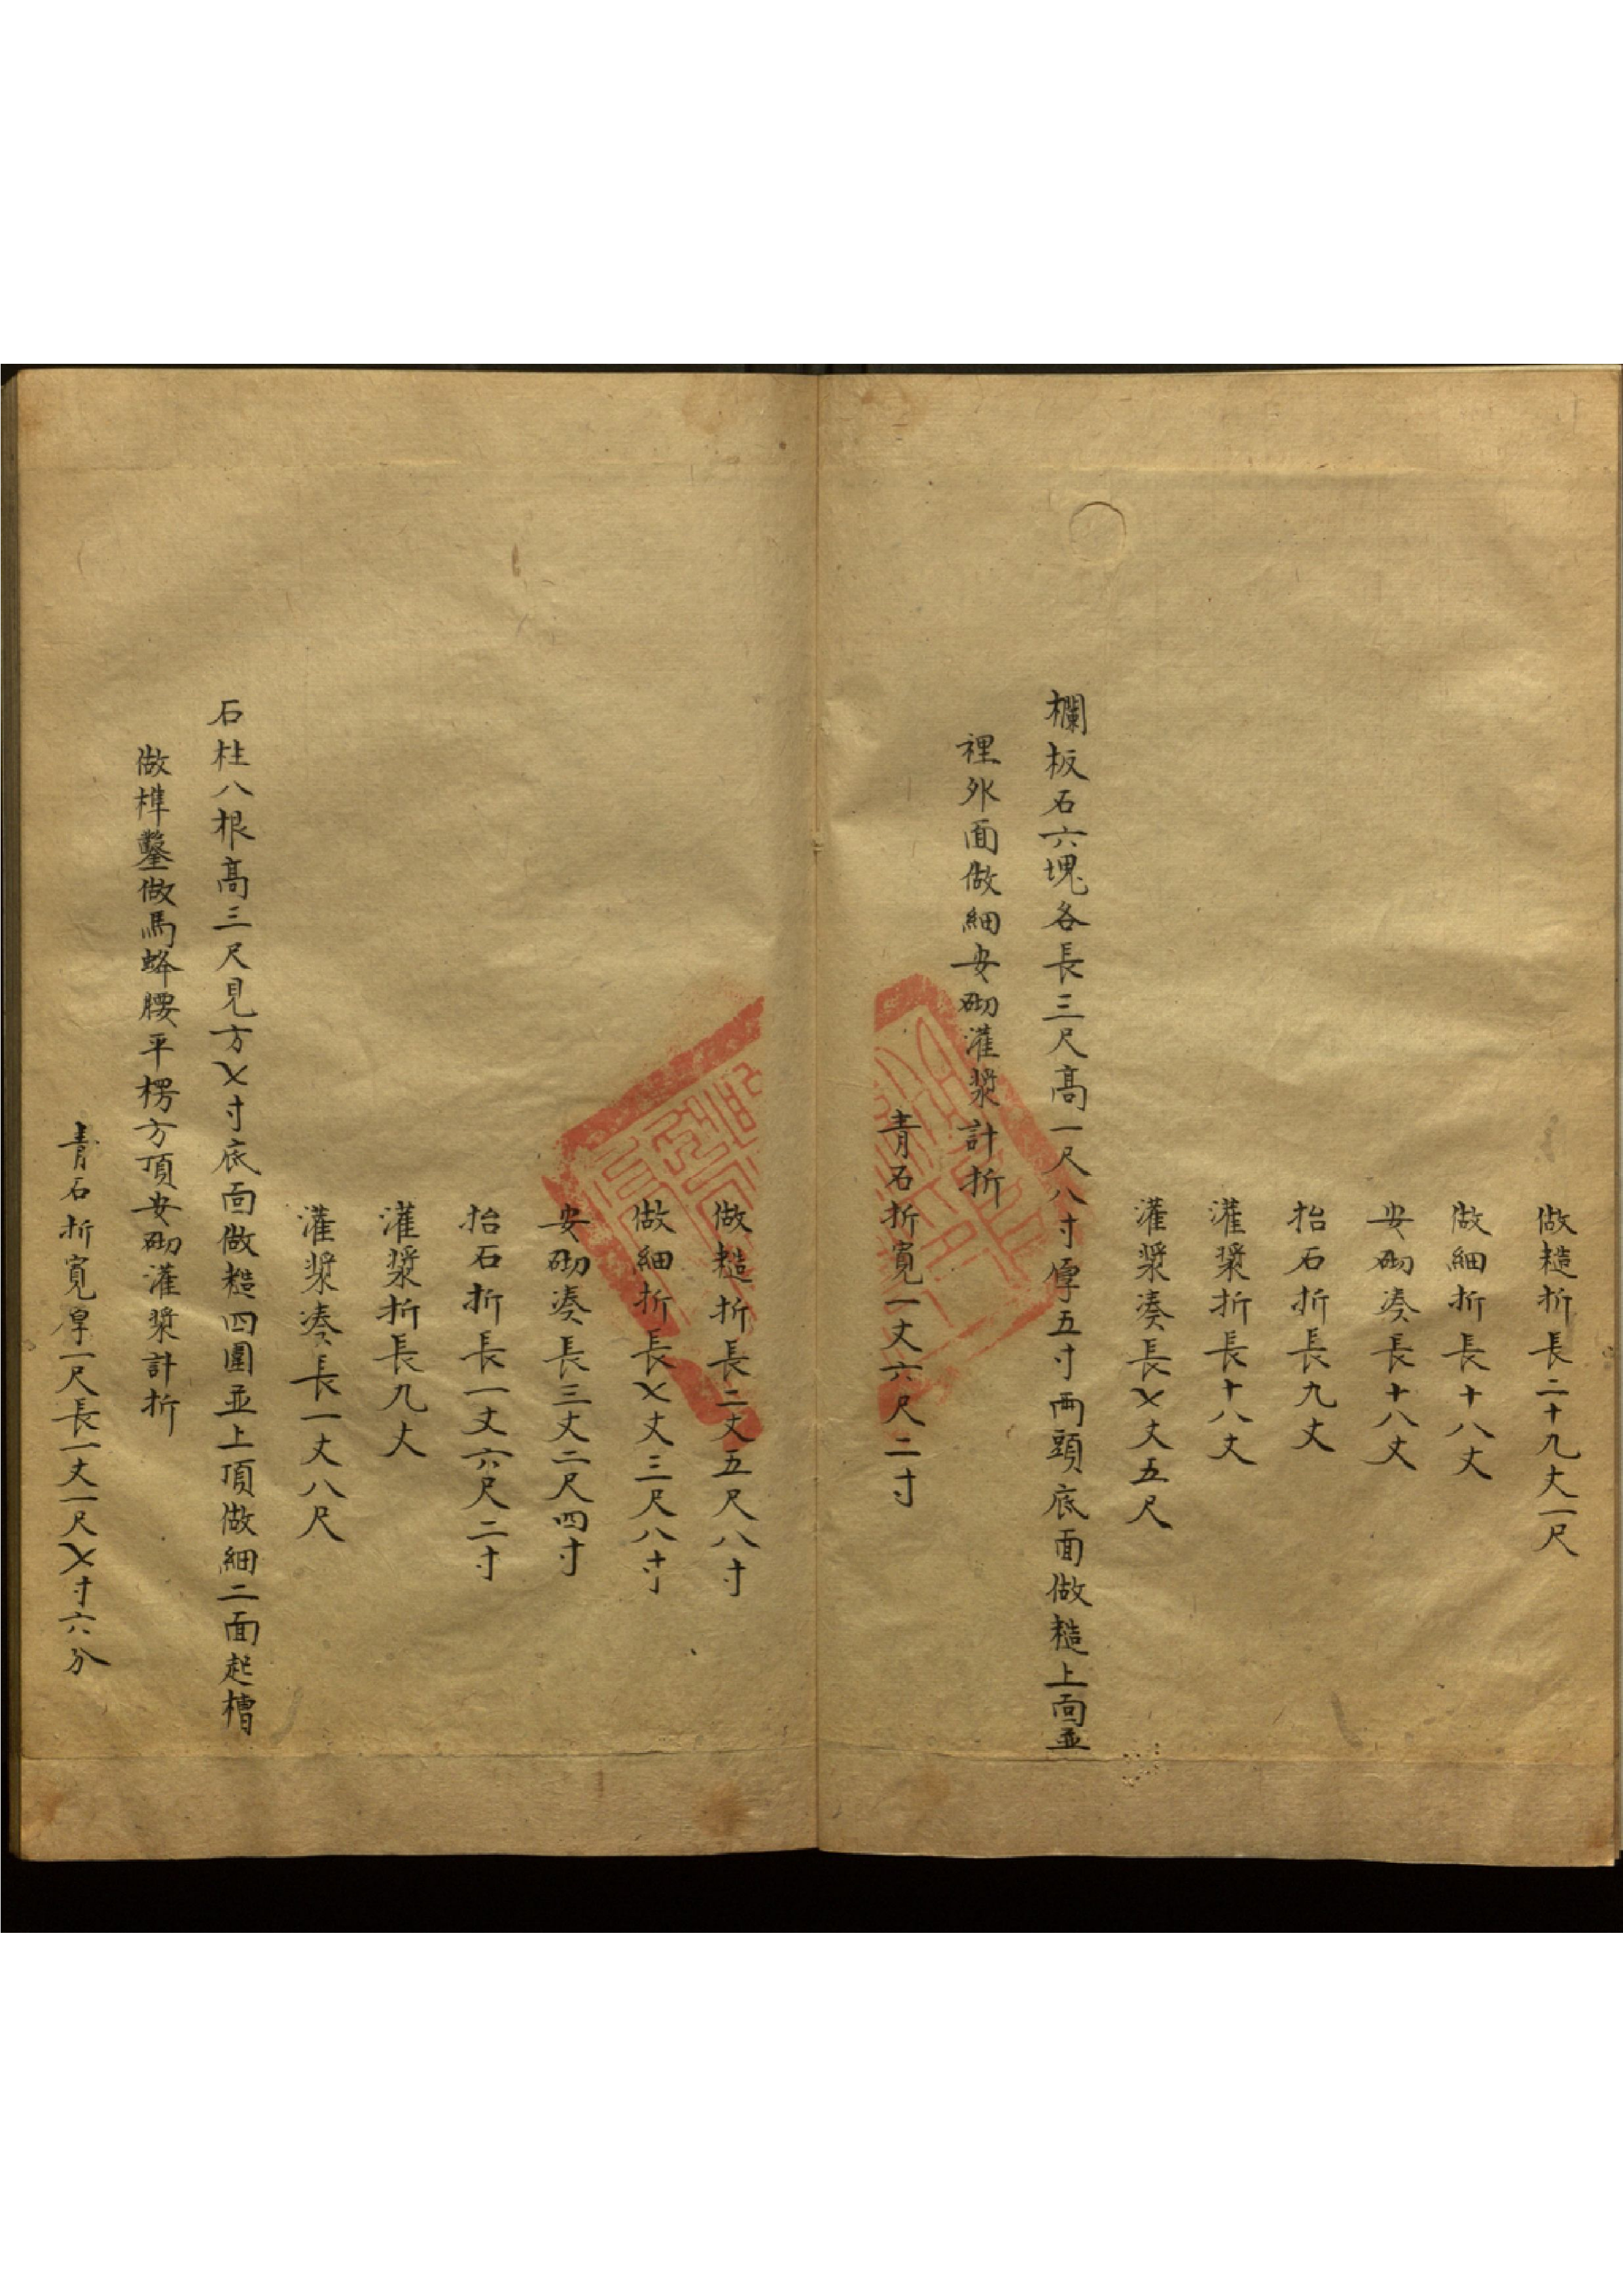 做糙折長二十九丈一尺
做細折長十八丈
安砌湊長十八丈
抬石折長九丈
灌漿折長十八丈
灌漿湊長七丈五尺
欄板石六塊各長三尺高一尺八寸厚五寸兩頭底面做糙上面並
裡外面做細安砌灌漿計折
青石折寬一丈六尺二寸
做糙折長二丈五尺八寸
做細折長七丈三尺八寸
安砌湊長三丈二尺四寸
抬石折長一丈六尺二寸
灌漿折長九丈
灌漿湊長一丈八尺
石柱八根高三尺見方七寸底面做糙四圍並上頂做細二面起槽
做榫鑿做馬蜂腰平楞方頂安砌灌漿計折
青石折寬厚一尺長一丈一尺七寸六分